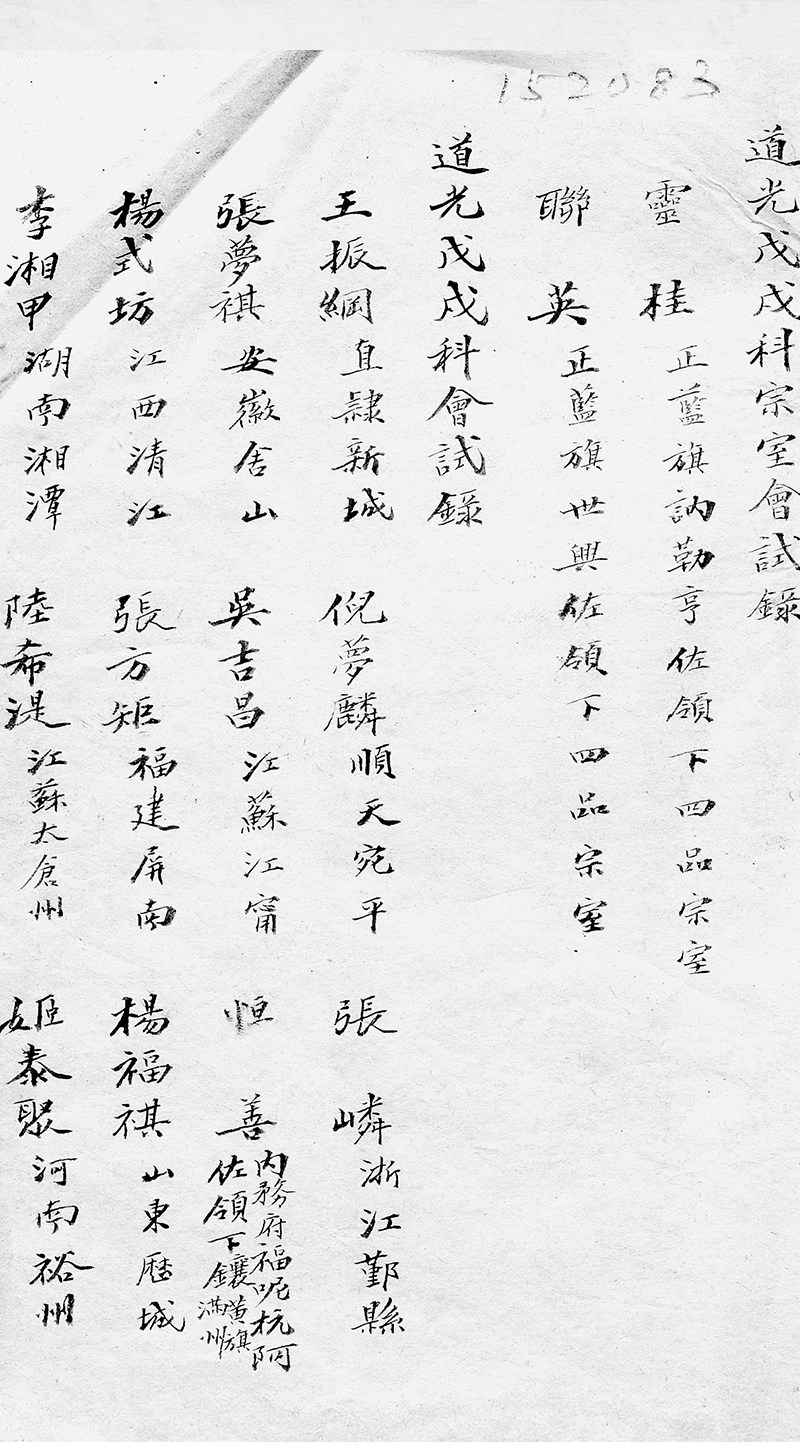 152083
道光戊戌科宗室會試錄
靈桂 正藍旗訥勒亨佐領下四品宗室
聯英 正藍旗世興佐領下四品宗室
道光戊戌科會試錄
王振綱 直隸新城 倪夢麟 順天宛平 張嶙 浙江鄞縣
張夢祺 安徽舍山 吳吉昌 江蘇江甯 恒善 內務府福呢杭阿佐領下鑲黃旗滿州
楊式坊 江西清江 張方矩 福建屏南 楊福祺 山東歷城
李湘甲 湖南湘潭 陸希湜 江蘇太倉州 姬泰聚 河南裕州